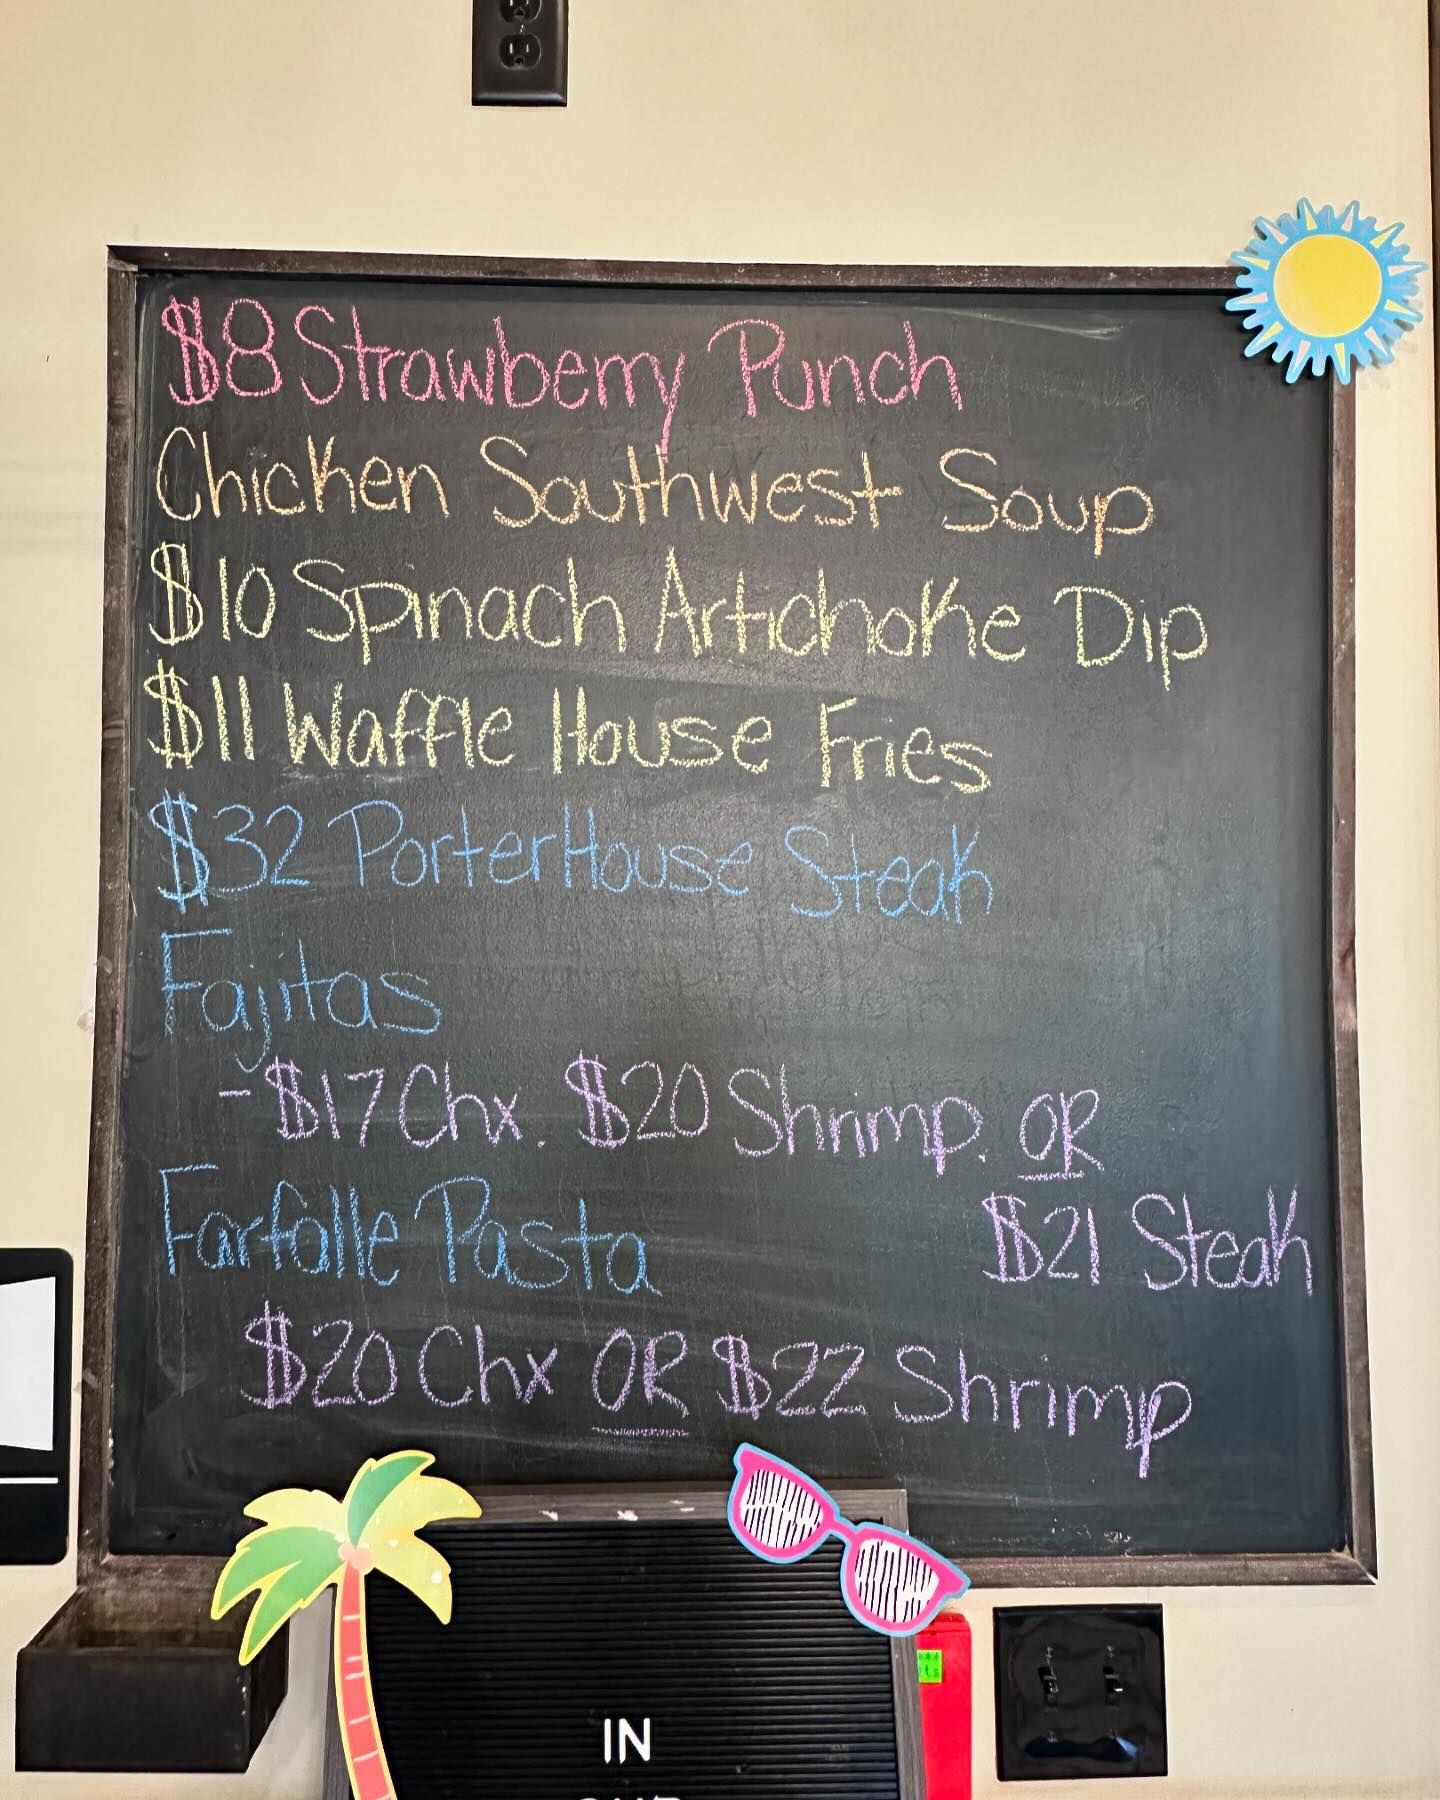 $8 Strawberry Punch
Chicken Southwest Soup
$10 Spinach Artichoke Dip
$11 Waffle House Fries
$32 PorterHouse Steak
Fajitas
-$17 Chx. $20 Shrimp. OR
$21 Steak
Farfalle Pasta
$20 Chx OR $22 Shrimp
IN